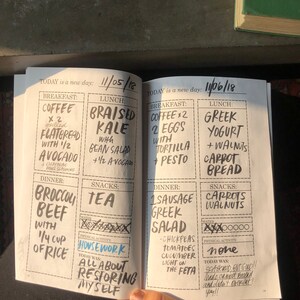 TODAY is a new day! 11/05/18
BREAKFAST:
COFFEE
x 2
FLATBREAD
WITH 1/2
AVOCADO
LUNCH:
BRAISED
KALE
WITH
BEAN SALAD
+ 1/2 AVOCADO
DINNER:
BROCCOLI
BEEF
WITH
1/4 CUP
OF RICE
SNACKS:
TEA
HOUSEWORK
ALL ABOUT
RESTORING
MYSELF
TODAY is a new day! 11/06/18
BREAKFAST:
COFFEE x2
2 EGGS
WITH
TORTILLA
+ PESTO
LUNCH:
GREEK
YOGURT
+ WALNUTS
CARROT
BREAD
DINNER:
SAUSAGE
GREEK
SALAD
TOMATOES
CUCUMBER
LIGHT ON
THE FETA
SNACKS:
CARROTS
WALNUTS
none
TODAY WAS